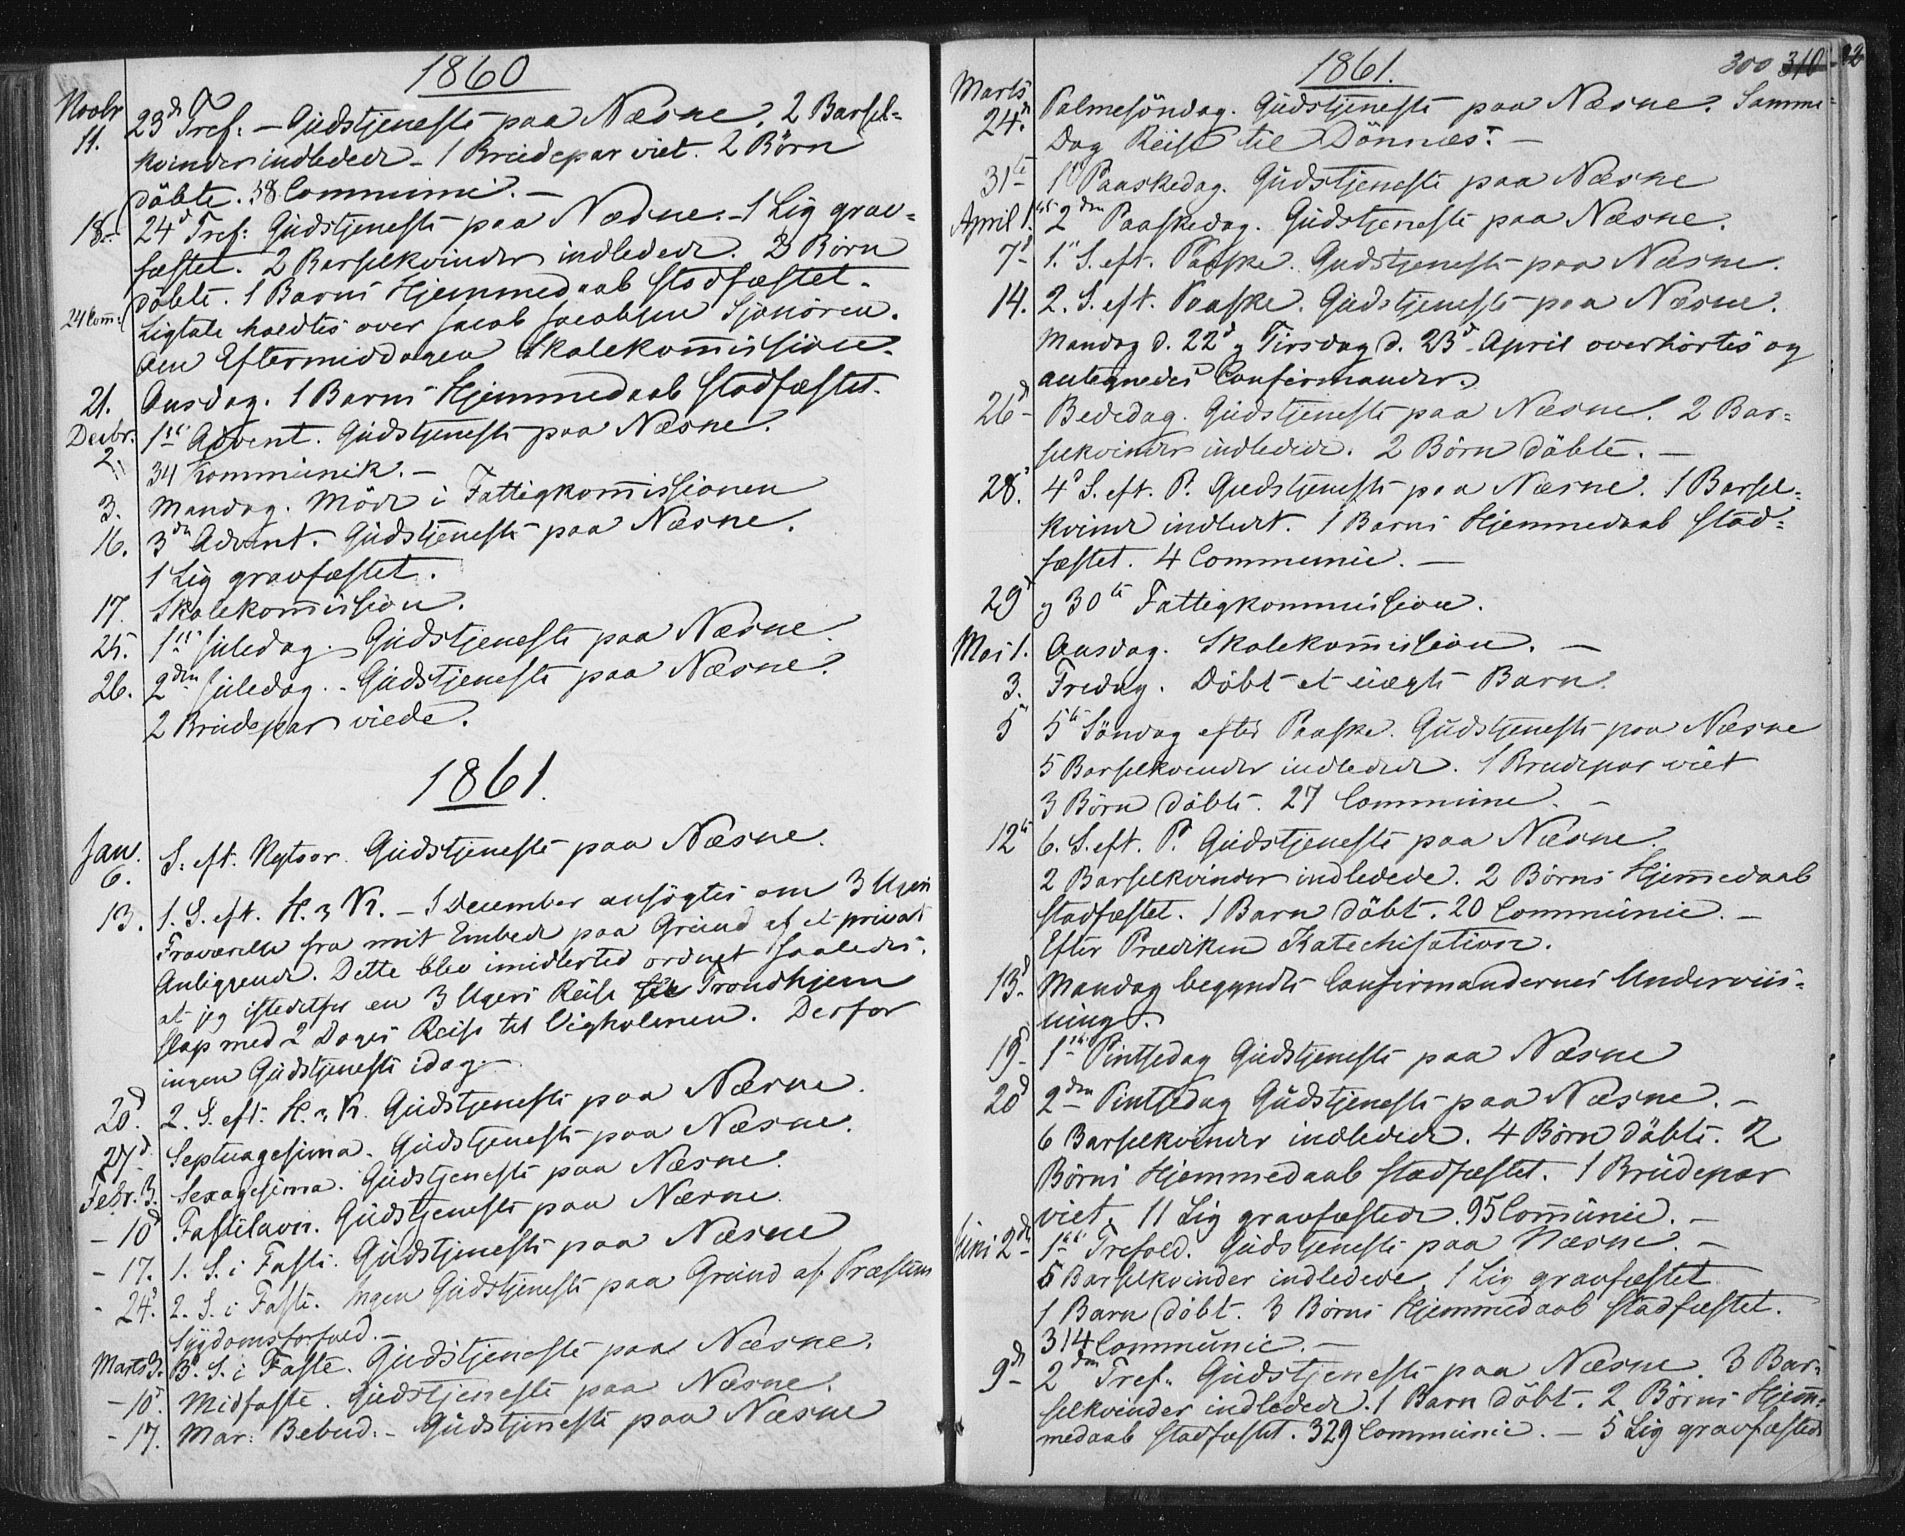 1860
Novbr 11. 23d Tref. – Gudstjeneste paa Næsne. 2 Barsel-
kvinder indledede – 1 Brudepar viet. 2 Börn
döbte. 38 Communi. –
18 – 24d Tref: Gudstjeneste paa Næsne. – 1 Lig grav-
fæstet. 2 Barselkvinder indledede. 2 Börn
döbte. 1 Barns Hjemmedaab stadfæstet.
24 Com. Ligtale holdtes over Jacob Jacobsen Sjonören.
Om Eftermiddagen Skolekommission.
21. Onsdag. 1 Barns Hjemmedaab stadfæstet.
Decbr. 2. 1ste Advent. Gudstjeneste paa Næsne.
34 Kommunik. –
3. Mandag. Möde i Fattigkommissionen
16. 3die Advent. Gudstjeneste paa Næsne.
1 Lig gravfæstet.
17. Skolekommission.
25. 1ste Juledag. Gudstjeneste paa Næsne.
26. 2den Juledag. – Gudstjeneste paa Næsne.
2 Brudepar viede.
1861.
Jan. 6. S. eft. Nytaar. Gudstjeneste paa Næsne.
13. 1. S. eft. H. 3 K. – I December ansögtes om 3 Ugers
Fraværelse fra mit Embede paa Grund af et privat
Anliggende. Dette blev imidlertid ordnet saaledes,
at jeg istedetfor en 3 Ugers Reise til Trondhjem
slap med 2 Dages Reise til Vigholmen. Derfor
ingen Gudstjeneste idag. –
20d. 2. S. eft. H. 3 K. Gudstjeneste paa Næsne.
27d. Septuagesima. Gudstjeneste paa Næsne.
Febr. 3. Sexagesima. Gudstjeneste paa Næsne.
– 10d Fastelavn. Gudstjeneste paa Næsne.
– 17. 1. S. i Faste. Gudstjeneste paa Næsne
– 24d. 2. S. i Faste. Ingen Gudstjeneste paa Grund af Præstens
Sygdomsforfald. –
Marts 3. 3d S. i Faste. Gudstjeneste paa Næsne.
– 10d. Midfaste. Gudstjeneste paa Næsne.
– 17. Mar. Bebud. – Gudstjeneste paa Næsne
1861.
300 310
Marts 24d. Palmesöndag. Gudstjeneste paa Næsne. Samme
Dag Reise til Dönnæs. –
31te 1ste Paaskedag. Gudstjeneste paa Næsne
April 1ste 2den Paaskedag. Gudstjeneste paa Næsne.
7d – 1. S. eft. Paaske. Gudstjeneste paa Næsne.
14. 2. S. eft. Paaske. Gudstjeneste paa Næsne.
Mandag d. 22d og Tirsdag d. 23d April overhörtes og
antegnedes Confirmander.
26d – Bededag. Gudstjeneste paa Næsne. 2 Bar-
selkvinder indledede. 2 Börn döbte. –
28d. 4d S. eft. P. Gudstjeneste paa Næsne. 1 Barsel-
kvinde indledet. 1 Barns Hjemmedaab stad-
fæstet. 4 Communic. –
29d og 30te Fattigkommission.
Mai 1. Onsdag. Skolekommission. –
3. Fredag. Döbt et uægte Barn.
5 5te Söndag efter Paaske. Gudstjeneste paa Næsne
5 Barselkvinder indledede. 1 Brudepar viet
3 Börn döbte. 27 Commune. –
12te 6. S. eft. P. Gudstjeneste paa Næsne.
2 Barselkvinder indledede. 2 Börns Hjemmedaab
stadfæstet. 1 Barn döbt. 20 Communic. –
Efter Prædiken Katechisation.
13d. Mandag begyndte Confirmandernes Underviis-
ning.
19d – 1ste Pintsedag Gudstjeneste paa Næsne
20d 2den Pintsedag Gudstjeneste paa Næsne. –
6 Barselkvinder indledede. 4 Börn döbte. 2
Börns Hjemmedaab stadfæstet. 1 Brudepar
viet. 11 Lig gravfæstede. 95 Communic. –
Juni 2d 1ste Trefold. Gudstjeneste paa Næsne. –
5 Barselkvinder indledede, 1 Lig gravfæstet
1 Barn döbt. 3 Börns Hjemmedaab stadfæstet.
314 Communic. –
9d – 2den Tref. Gudstjeneste paa Næsne. 3 Bar-
selkvinder indledede. 1 Barn döbt. 2 Börns Hjem-
medaab stadfæstet. 329 Communic. – 5 Lig gravfæstede